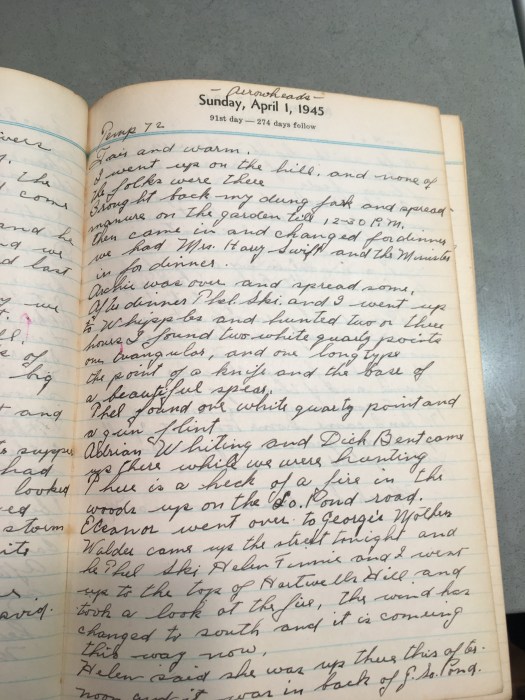 ivers
the
come
and he
nd we
d last
we
ll.
s of
big
t and
to suppe
had
looked
ved
storm
ite
avid.
- Arrowheads -
Sunday, April 1, 1945
91st day — 274 days follow
Temp 72
Fair and warm.
I went up on the hill. and none of
the folks were there
Brought back my dung fork and spread
manure on the garden till 12-30 P.M.
then came in and changed for dinner
we had Mrs. Harry Swift and the Minister
in for dinner.
Archie was over and spread some,
After dinner Phel Ski. and I went up
to Whipples and hunted two or three
hours, I found two white quartz points
one triangular, and one long type
the point of a knife and the base of
a beautiful spear,
Phel found one white quartz point and
a gun flint
Adrian Whiting and Dick Bent came
up there while we were hunting
There is a heck of a fire in the
woods up on the So. Pond road.
Eleanor went over to Georgie Mothers
Waldu came up the street tonight and
he Phel Ski Helen Tinnie and I went
up to the top of Hartwells Hill and
took a look at the fire, the wind has
changed to south and it is comeing
this way now,
Helen said she was up there this after-
noon and it was in back of G. So. Pond.